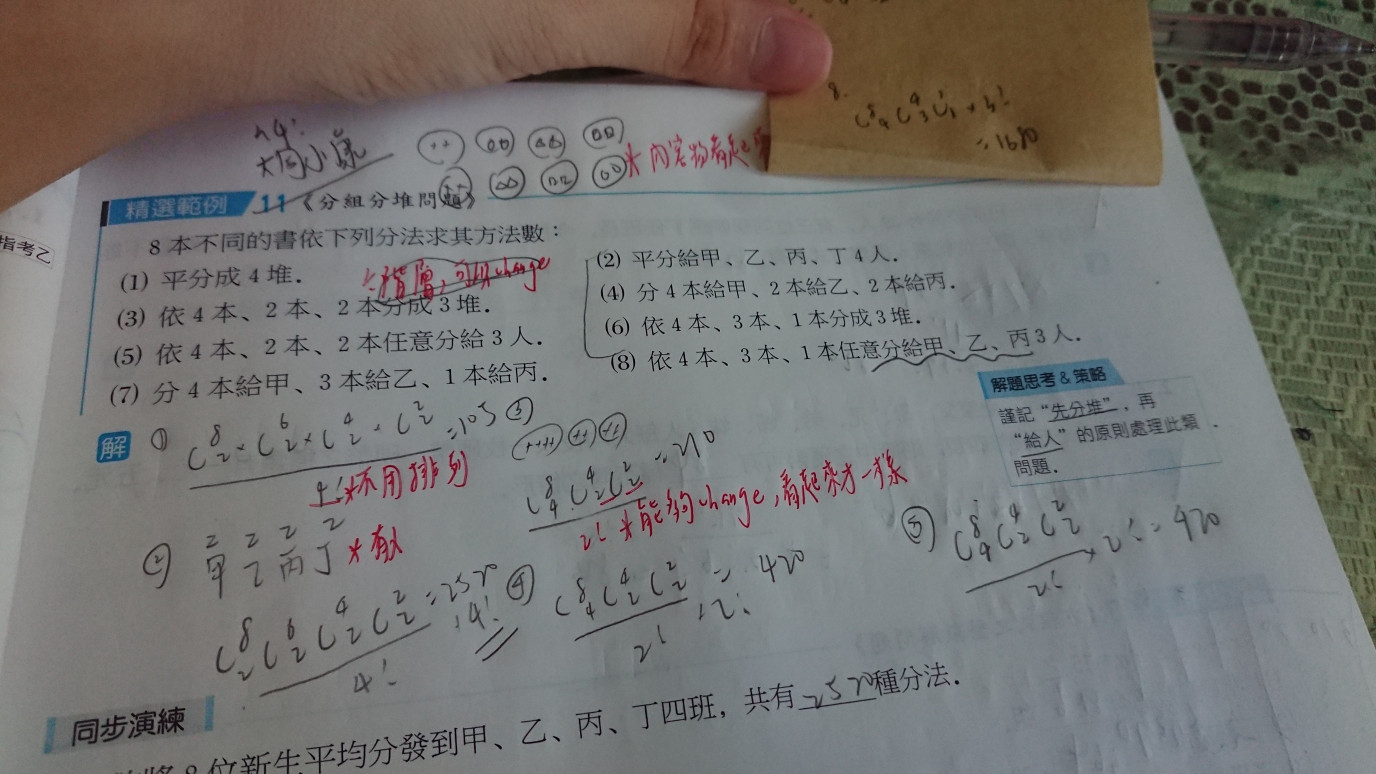 8.
C⁸₄ C⁴₃ C¹₁ × 3!
= 1680
×4!
指考乙
精選範例 11《分組分堆問題》
8 本不同的書依下列分法求其方法數：
(1) 平分成 4 堆.
(2) 平分給甲、乙、丙、丁 4 人.
(3) 依 4 本、2 本、2 本分成 3 堆.
(4) 分 4 本給甲、2 本給乙、2 本給丙.
(5) 依 4 本、2 本、2 本任意分給 3 人.
(6) 依 4 本、3 本、1 本分成 3 堆.
(7) 分 4 本給甲、3 本給乙、1 本給丙.
(8) 依 4 本、3 本、1 本任意分給甲、乙、丙 3 人.
解題思考 & 策略
謹記“先分堆”，再
“給人”的原則處理此類
問題.
解
① C⁸₂ × C⁶₂ × C⁴₂ × C²₂ = 105
4! *不用排列
③
C⁸₄ C⁴₂ C²₂ = 210
2! *能夠change，看起來才一樣
② 2 2 2 2
甲 乙 丙 丁 *有人
C⁸₂ C⁶₂ C⁴₂ C²₂ = 2520
4! ×4!
④ C⁸₄ C⁴₂ C²₂ = 420
2! ×2!
⑤ C⁸₄ C⁴₂ C²₂ × 2! = 420
2!
同步演練
8 位新生平均分發到甲、乙、丙、丁四班，共有 2520 種分法.